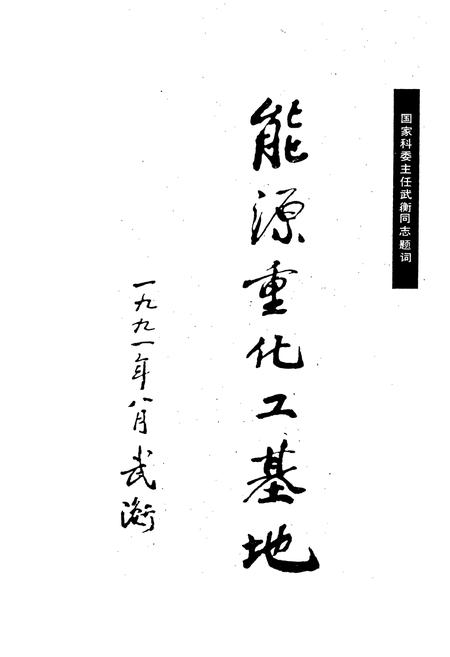 国家科委主任武衡同志题词
能源重化工基地
一九九一年八月武衡